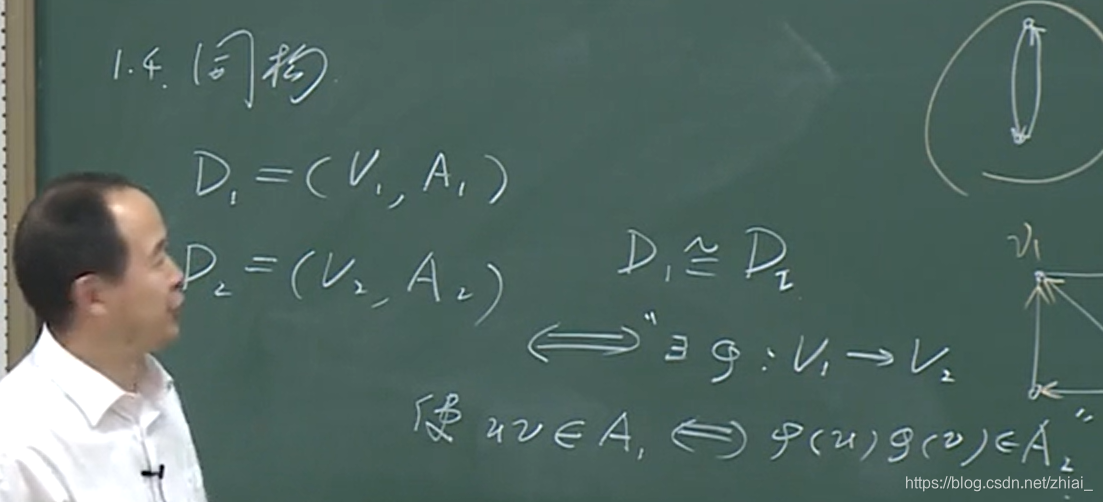 1.4. 同构
D₁ = (V₁, A₁)
D₂ = (V₂, A₂)
D₁ ≅ D₂
⟺ "∃ φ : V₁ → V₂
使 uv ∈ A₁ ⟺ φ(u)φ(v) ∈ A₂"
v₁
https://blog.csdn.net/zhiai_